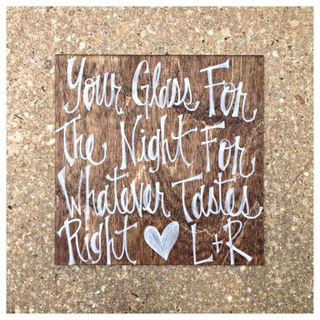 Your Glass For
The Night For
Whatever Tastes
Right ♥ L+R